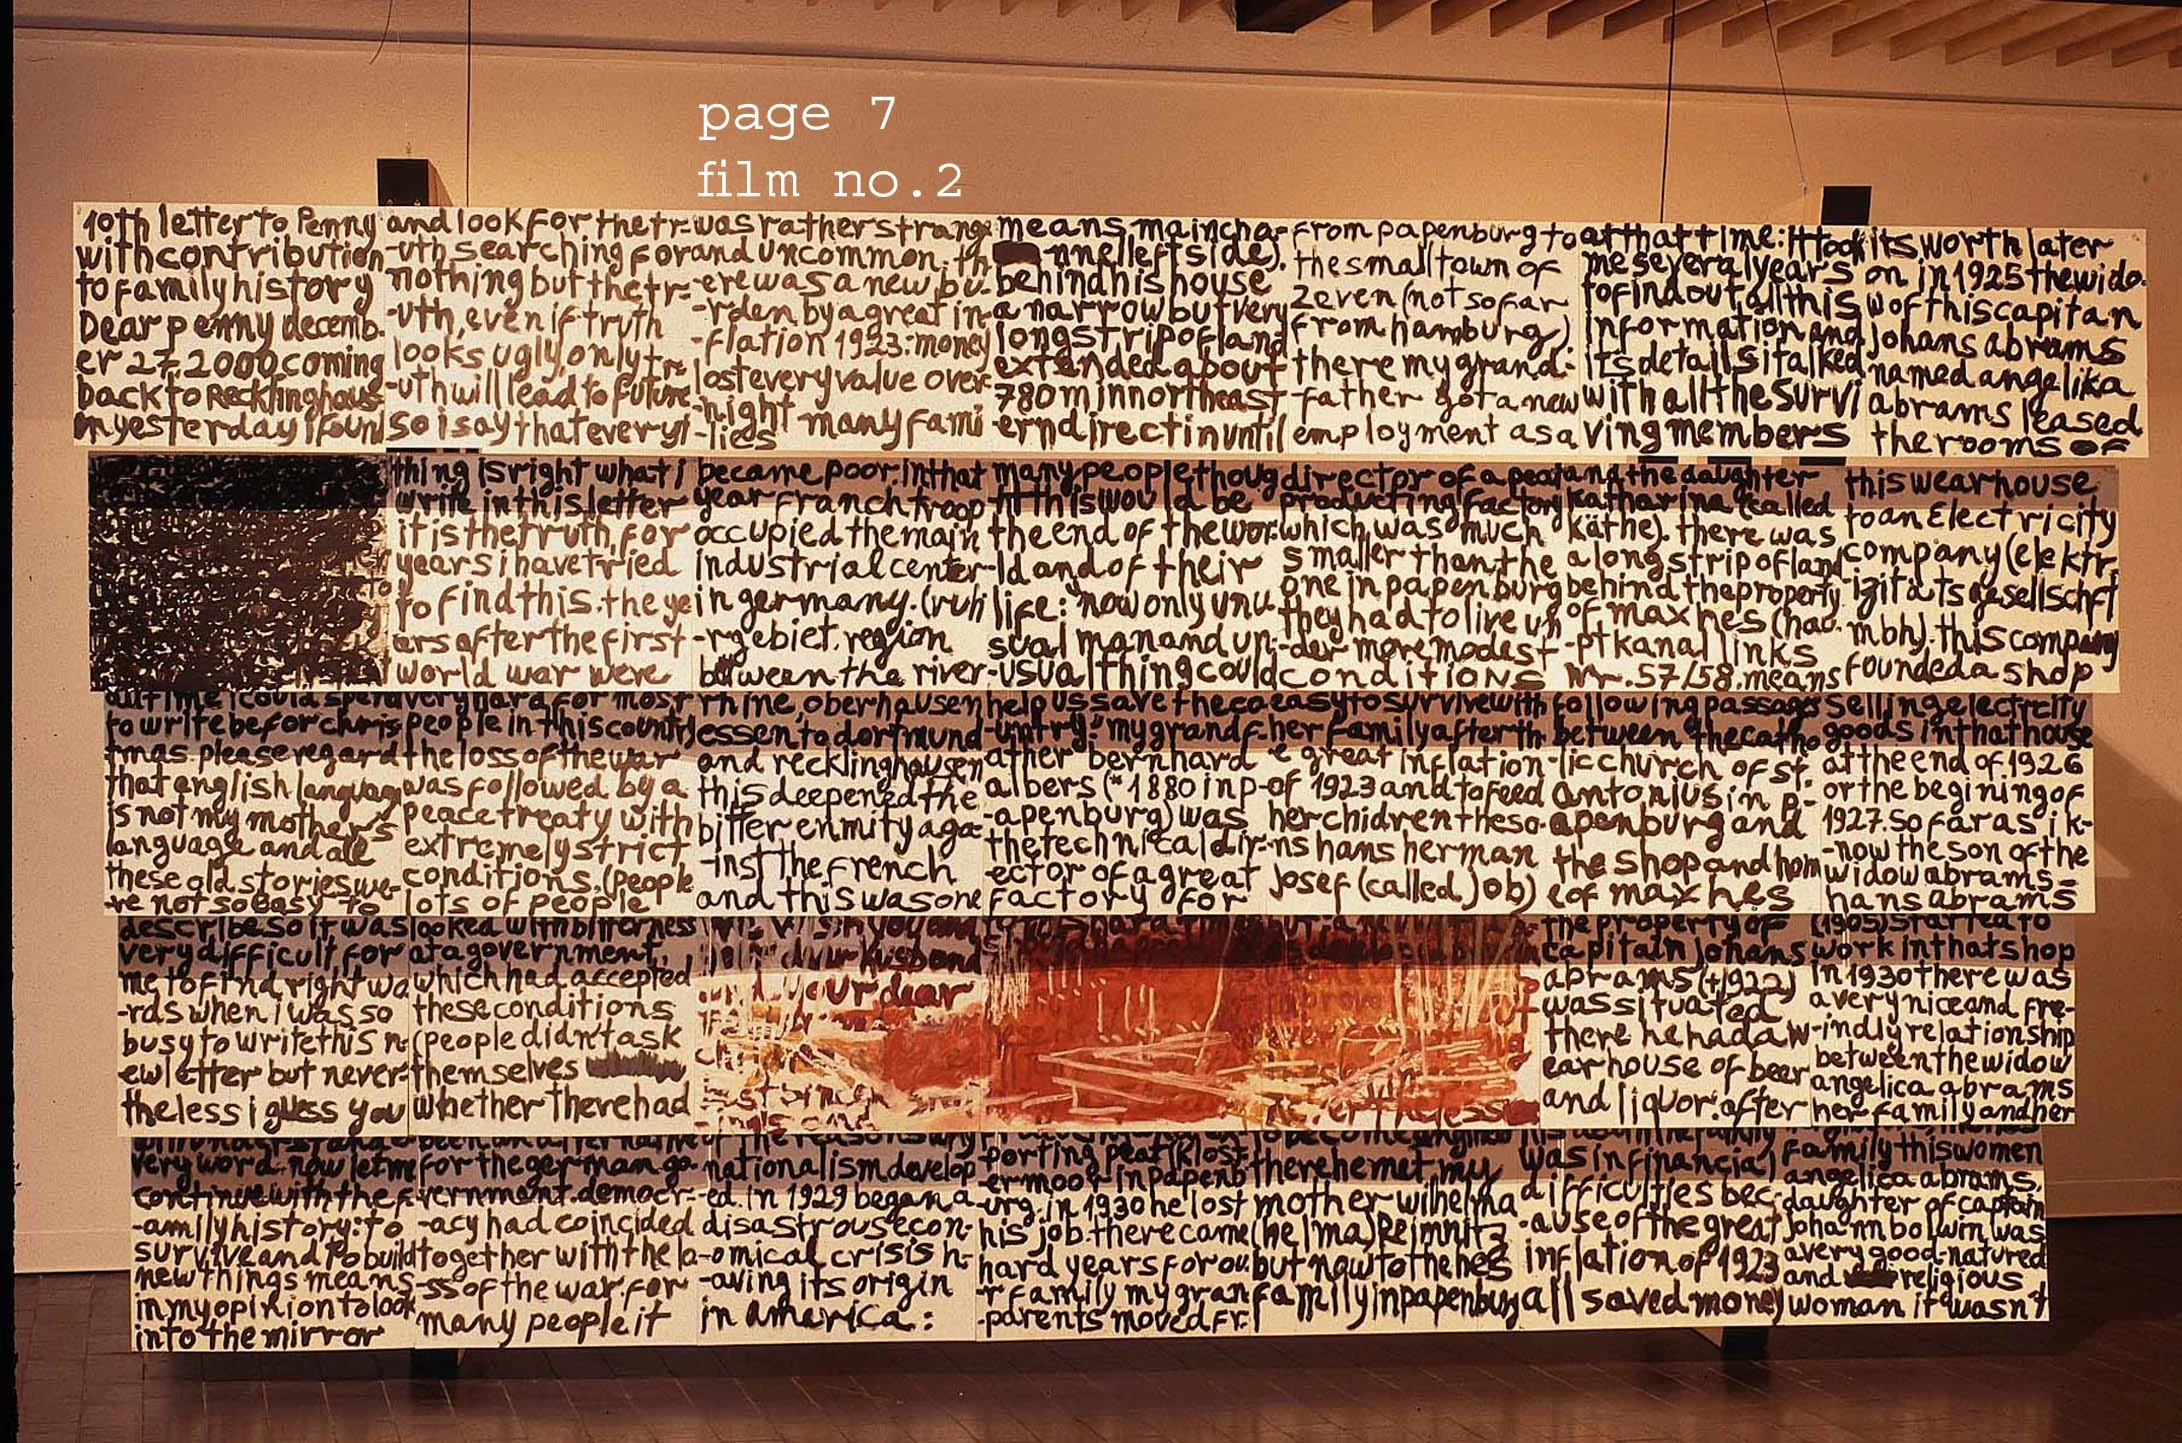 page 7
film no.2
10th letter to Penny
with contribution
to family history
Dear penny decemb-
er 27.2000 coming
back to Recklinghaus-
en yesterday i foun
all time i could spend
to write befor chris
tmas. please regard
that english languag
is not my mother's
language and all
these old stories we-
-re not so easy to
describe so it was
very difficult for
me to find right wo
-rds when i was so
busy to write this n-
ew letter but never-
theless i guess you
will understand e-
very word. now let me
continue with the f-
-amily history: to
survive and to build
new things means
in my opinion to look
into the mirror
and look for the tr-
-uth searching for
nothing but the tr-
-uth, even if truth
looks ugly, only tr-
-uth will lead to future
so i say that every
thing is right what i
write in this letter
it is the truth, for
years i have tried
to find this. the ye
ars after the first
world war were
very hard for most
people in this country
the loss of the war
was followed by a
peace treaty with
extremely strict
conditions. (people
lots of people
looked with bitterness
at a government,
which had accepted
these conditions
(people didn't ask
themselves
whether there had
been an alternative
for the german go-
vernment. democr-
-acy had coincided
together with the lo-
-ss of the war. for
many people it
was rather strange
and uncommon. th
-ere was a new bu-
-rden by a great in-
-flation 1923: money
lost every value over
-night many fami
-lies
became poor. in that
year franch troop
occupied the main
industrial center
in germany. (ruh
-rgebiet. region
between the river
rhine, oberhausen
essen to dortmund
and recklinghausen
this deepened the
bitter enmity aga-
-inst the french
and this was one
husband
and your dear
of the reasons why
nationalism develop
-ed. in 1929 began a
disastrous econ-
-omical crisis h-
-aving its origin
in america:
many people thoug
ht this would be
the end of the wor-
-ld and of their
life: "now only unu-
sual man and un-
-usual thing could
help us save the co-
-untry!" my grandf-
ather bernhard
albers (*1880 in p-
-apenburg) was
the technical dir-
ector of a great
factory for
porting peat (klost
-ermoor in papenb
-urg. in 1930 he lost
his job. there came
hard years for ou-
-r family my gran
-parents moved fr.
from papenburg to
the small town of
zeven (not so far
from hamburg)
there my grand-
-father got a new
employment as a
director of a peat
producting factory
which was much
smaller than the
one in papenburg
they had to live un
-der more modest
conditions
easy to survive with
her family after th
e great inflation
of 1923 and to feed
her chidren the so-
ns hans herman
josef (called job)
there he met my
mother wilhelma
(helma) Reimnitz
but now to the hes
family in papenburg
means: main cha-
-nnel left side).
behind his house
a narrow but very
long strip of land
extended about
780 m in northeast
ern direct in until
at that time: It took
me several years
to find out all this
information and
its details i talked
with all the survi
ving members
and the daughter
katharina (called
käthe). there was
a long strip of land
behind the property
of max hes (hau-
-ptkanal links
Nr. 57/58. means
following passage
between the catho
-lic church of st.
antonius in p-
apenburg and
the shop and hom
e of max hes
the property of
capitain johans
abrams (†1922)
was situated
there he had a w-
earhouse of beer
and liquor. after
was in financial
difficulties bec-
-ause of the great
inflation of 1923
all saved money
its worth later
on in 1925 the wido-
w of this capitan
johans abrams
named angelika
abrams leased
the rooms of
this wearhouse
to an Electricity
company (elektr-
-izitätsgesellschft
mbh). this company
founded a shop
selling electrcity
goods in that house
at the end of 1926
or the begining of
1927. so far as i k-
-now the son of the
widow abrams =
hans abrams
(1905) started to
work in that shop
in 1930 there was
a very nice and fre-
-indly relationship
between the widow
angelica abrams
her family and her
family this women
angelica abrams,
daughter of captain
johann bolwin was
a very good-natured
and religious
woman it wasn't